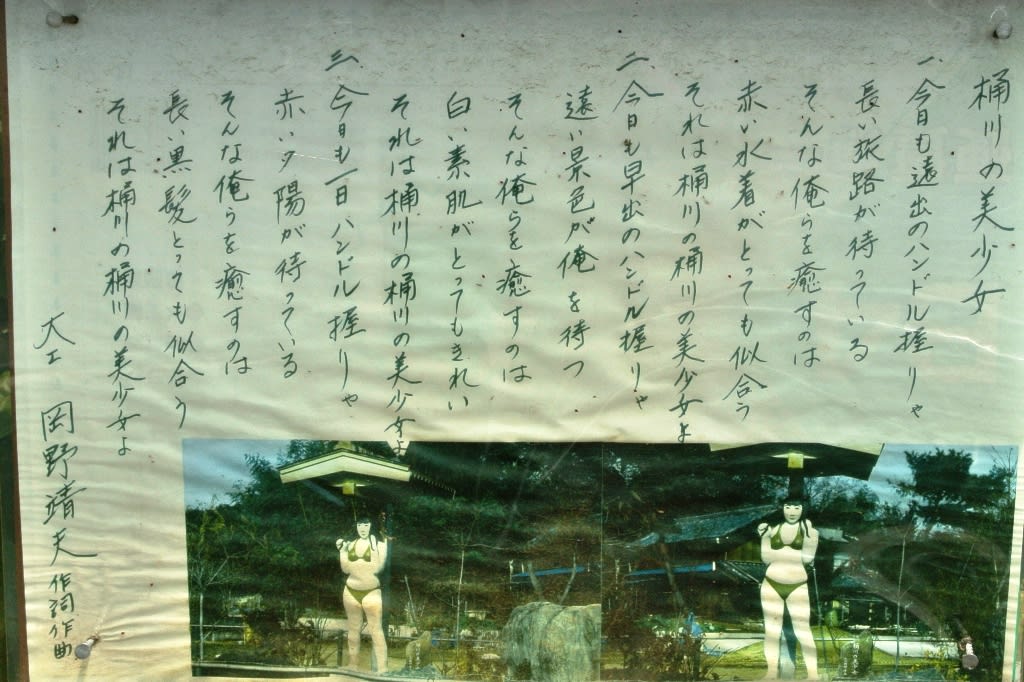 桶川の美少女
一、今日も遠出のハンドル握りゃ
長い旅路が待っている
そんな俺らを癒すのは
赤い水着がとっても似合う
それは桶川の桶川の美少女よ
二、今日も早出のハンドル握りゃ
遠い景色が俺を待つ
そんな俺らを癒すのは
白い素肌がとってもきれい
それは桶川の桶川の美少女よ
三、今日も一日ハンドル握りゃ
赤い夕陽が待っている
そんな俺らを癒すのは
長い黒髪とっても似合う
それは桶川の桶川の美少女よ
大工 岡野靖夫 作詞作曲